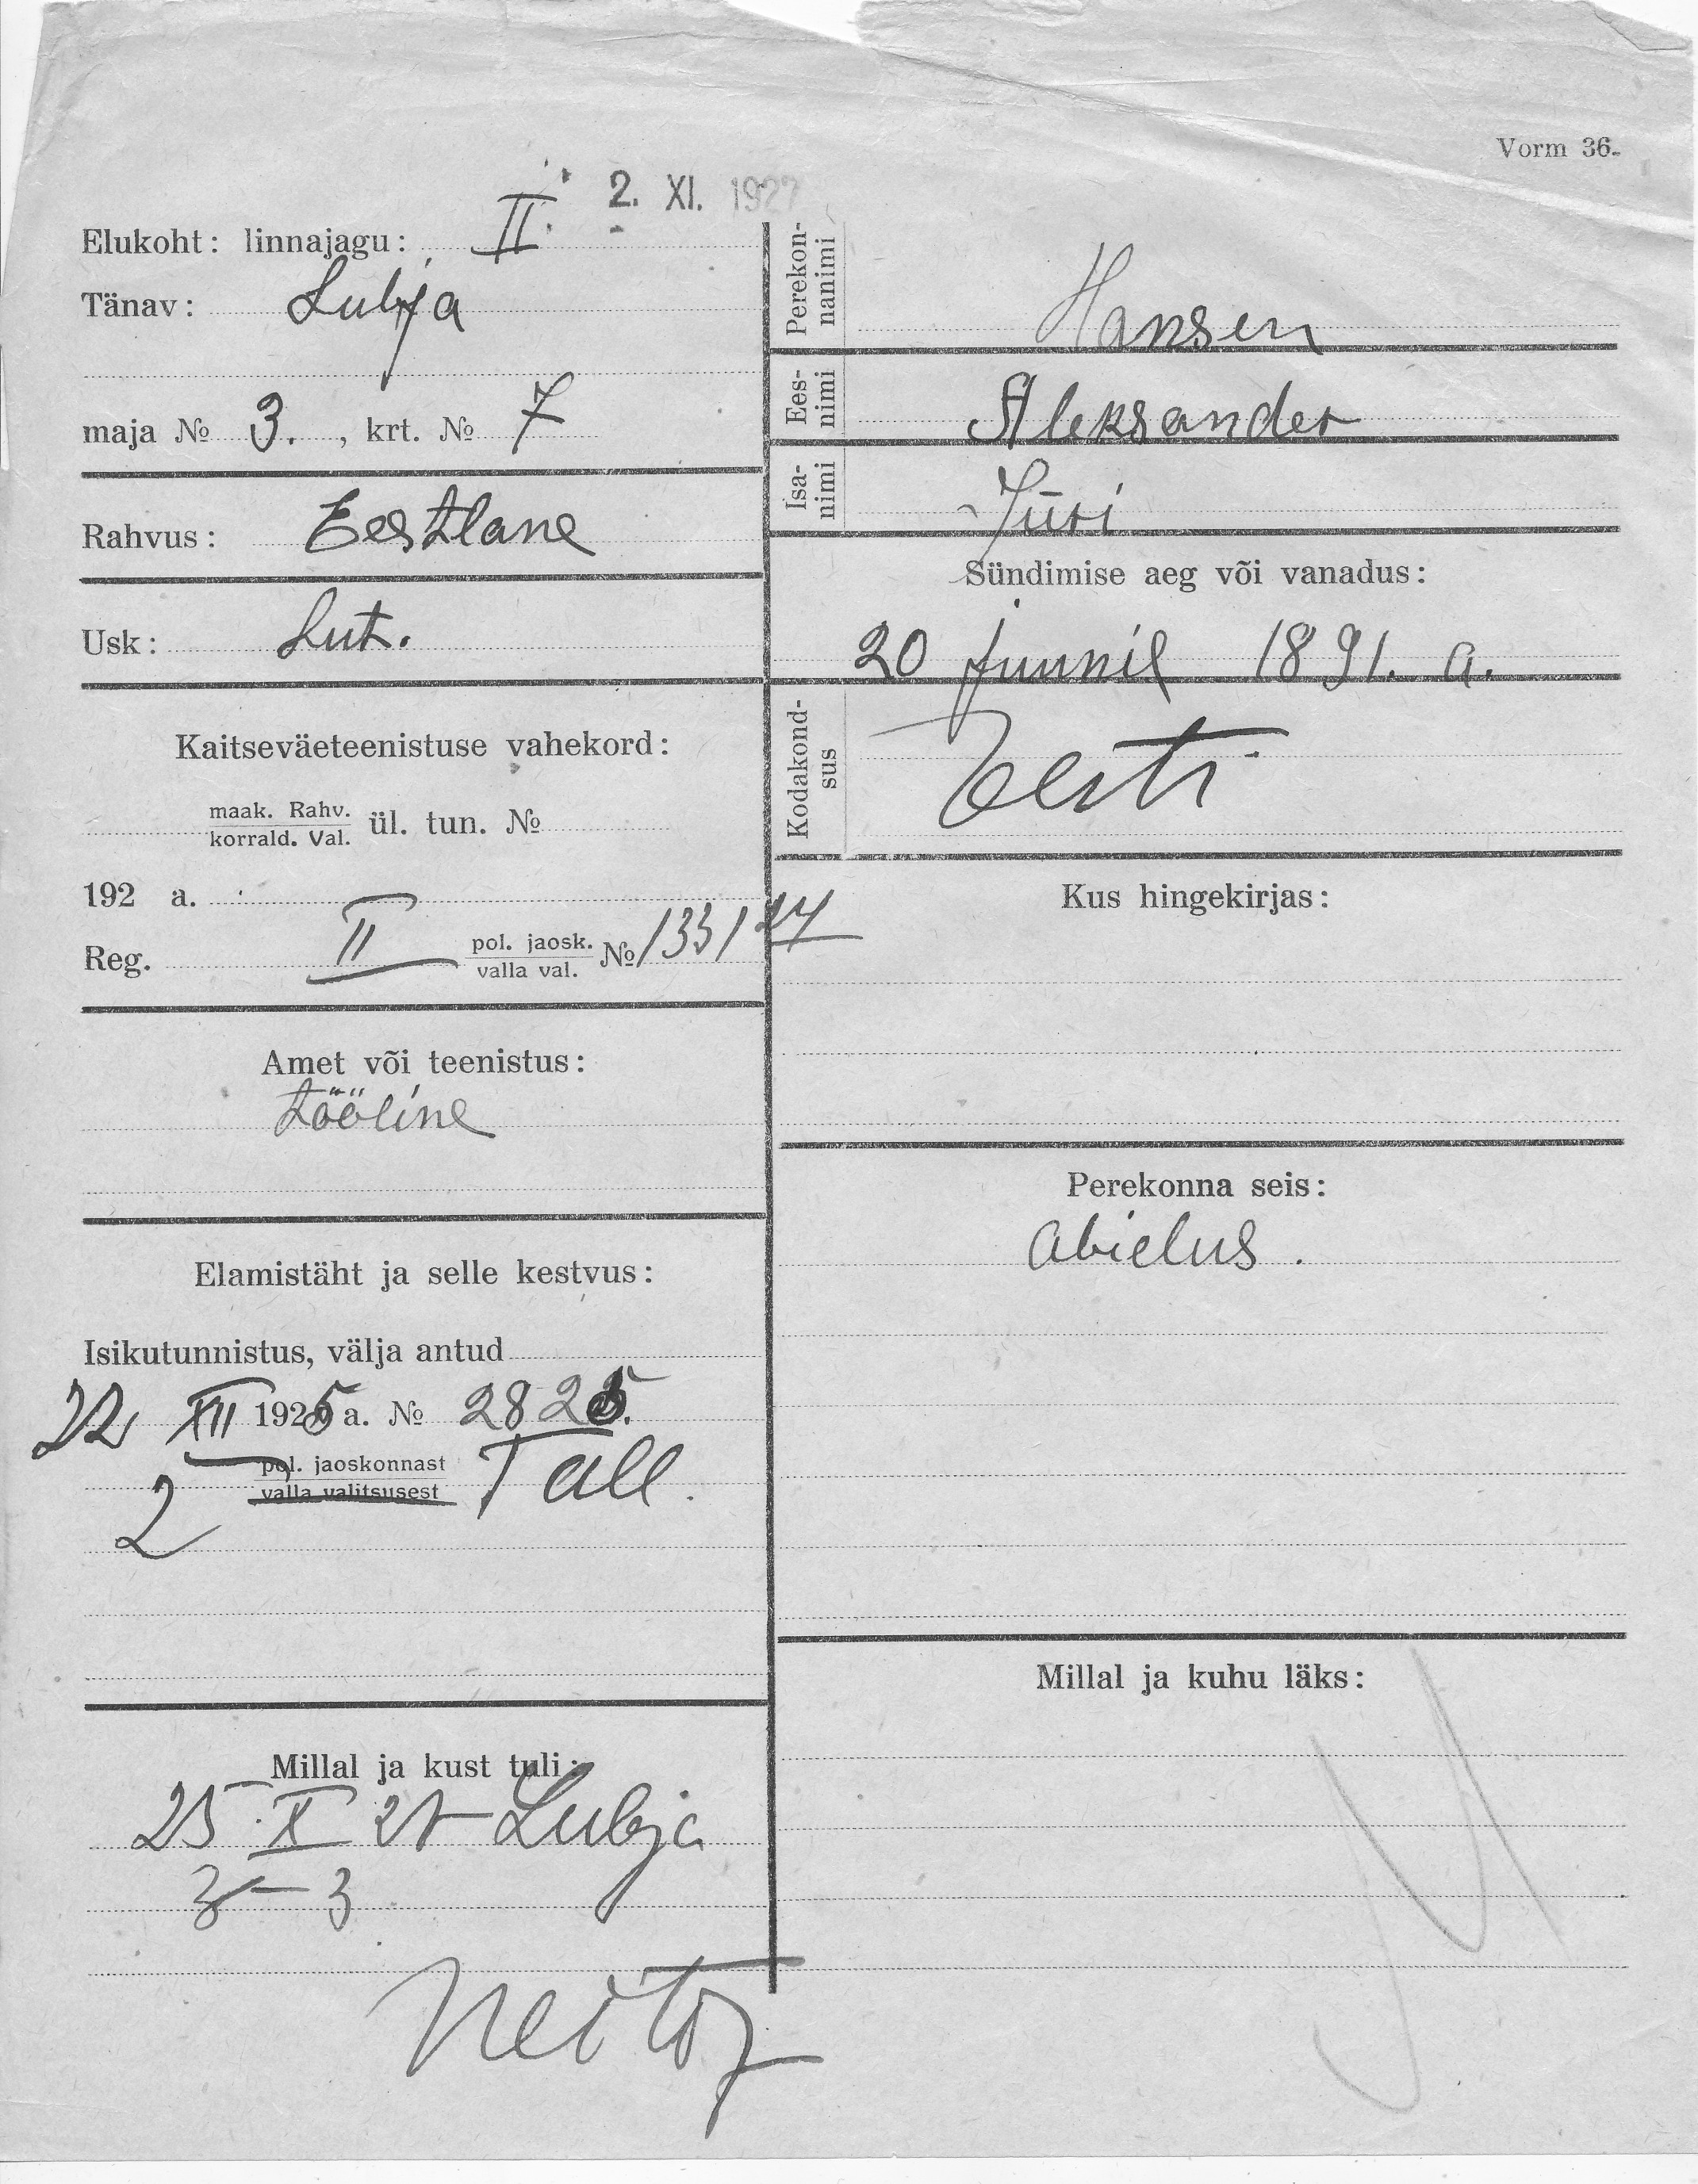 Vorm 36.
2. XI. 1927
Elukoht: linnajagu: II.
Tänav: Lubja
maja № 3. , krt. № 7
Rahvus: Eestlane
Usk: Lut.
Kaitseväeteenistuse vahekord:
maak. Rahv.
korrald. Val. ül. tun. №
192 a.
Reg. II pol. jaosk.
valla val. № 133/
Amet või teenistus:
tööline
Elamistäht ja selle kestvus:
Isikutunnistus, välja antud
22 XII 1925 a. № 2825.
2 pol. jaoskonnast Tall.
valla valitsusest
Millal ja kust tuli:
25 X 27 Lubja
3 — 3
Perekon-
nanimi Hansen
Ees-
nimi Aleksander
Isa-
nimi Jüri
Sündimise aeg või vanadus:
20 juunil 1891. a.
Kodakond-
sus Eesti
Kus hingekirjas:
Perekonna seis:
abielus.
Millal ja kuhu läks: